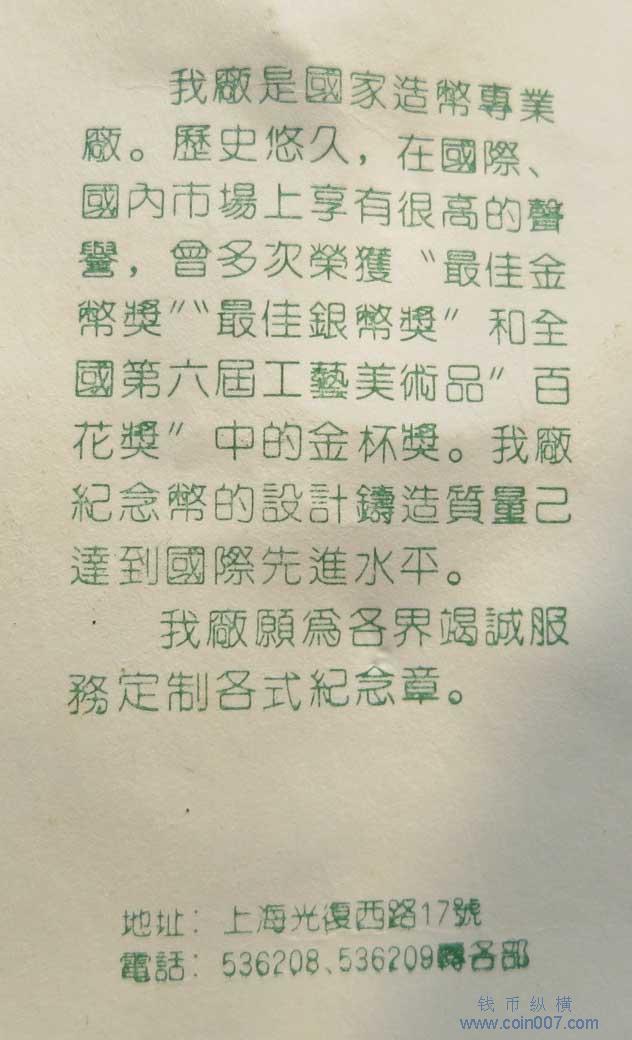 我廠是國家造幣專業
廠。歷史悠久，在國際、
國內市場上享有很高的聲
譽，曾多次榮獲〝最佳金
幣獎〞〝最佳銀幣獎〞和全
國第六屆工藝美術品〞百
花獎〞中的金杯獎。我廠
紀念幣的設計鑄造質量己
達到國際先進水平。
我廠願為各界竭誠服
務定制各式紀念章。
地址：上海光復西路17號
電話：536208、536209轉各部
钱币纵横
www.coin007.com